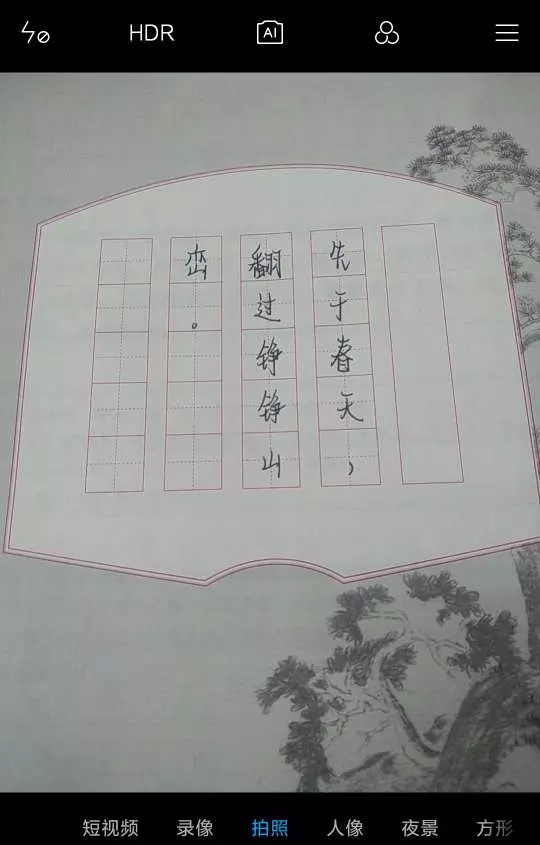 HDR
AI
先于春天，
翻过铮铮山
峦。
短视频 录像 拍照 人像 夜景 方形